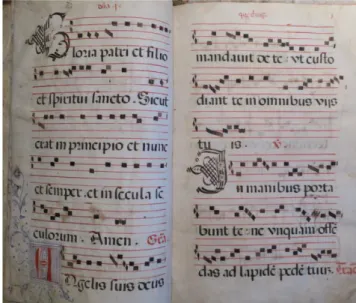 Gloria patri et filio
et spiritui sancto. Sicut
erat in principio et nunc
et semper. et in secula se
culorum. Amen. Gra.
Angelis suis deus
mandauit de te. vt custo
diant te in omnibus vijs
tuis. V.
In manibus porta
bunt te. ne vnquam offē
das ad lapidē pedē tuū.